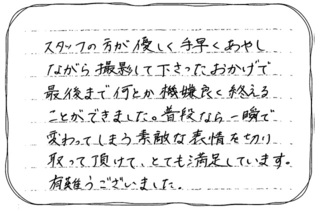 スタッフの方が優しく手早くあやし
ながら撮影して下さったおかげで
最後まで何とか機嫌良く終える
ことができました。普段なら一瞬で
変わってしまう素敵な表情を切り
取って頂けて、とても満足しています。
有難うございました。